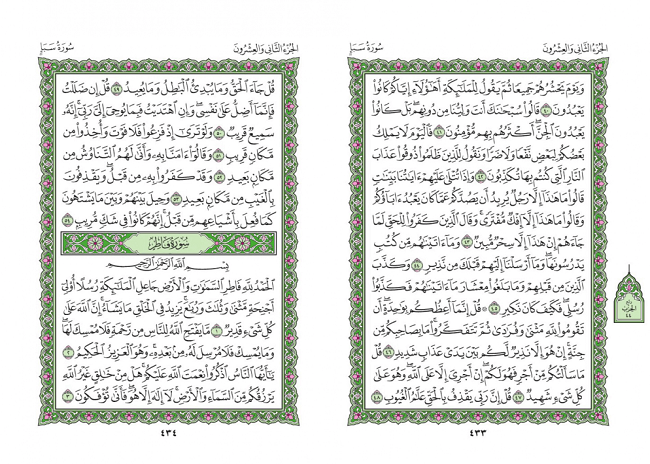 الجُزْءُ الثَّانِي وَالعِشْرُونَ
سُورَةُ سَبَإٍ
وَيَوْمَ يَحْشُرُهُمْ جَمِيعًا ثُمَّ يَقُولُ لِلْمَلَٰٓئِكَةِ أَهَٰٓؤُلَآءِ إِيَّاكُمْ كَانُوا۟
يَعْبُدُونَ ٤٠ قَالُوا۟ سُبْحَٰنَكَ أَنتَ وَلِيُّنَا مِن دُونِهِم بَلْ كَانُوا۟
يَعْبُدُونَ ٱلْجِنَّ أَكْثَرُهُم بِهِم مُّؤْمِنُونَ ٤١ فَٱلْيَوْمَ لَا يَمْلِكُ
بَعْضُكُمْ لِبَعْضٍ نَّفْعًا وَلَا ضَرًّا وَنَقُولُ لِلَّذِينَ ظَلَمُوا۟ ذُوقُوا۟ عَذَابَ
ٱلنَّارِ ٱلَّتِى كُنتُم بِهَا تُكَذِّبُونَ ٤٢ وَإِذَا تُتْلَىٰ عَلَيْهِمْ ءَايَٰتُنَا بَيِّنَٰتٍ
قَالُوا۟ مَا هَٰذَآ إِلَّا رَجُلٌ يُرِيدُ أَن يَصُدَّكُمْ عَمَّا كَانَ يَعْبُدُ ءَابَآؤُكُمْ
وَقَالُوا۟ مَا هَٰذَآ إِلَّآ إِفْكٌ مُّفْتَرًى وَقَالَ ٱلَّذِينَ كَفَرُوا۟ لِلْحَقِّ لَمَّا
جَآءَهُمْ إِنْ هَٰذَآ إِلَّا سِحْرٌ مُّبِينٌ ٤٣ وَمَآ ءَاتَيْنَٰهُم مِّن كُتُبٍ
يَدْرُسُونَهَا وَمَآ أَرْسَلْنَآ إِلَيْهِمْ قَبْلَكَ مِن نَّذِيرٍ ٤٤ وَكَذَّبَ
ٱلَّذِينَ مِن قَبْلِهِمْ وَمَا بَلَغُوا۟ مِعْشَارَ مَآ ءَاتَيْنَٰهُمْ فَكَذَّبُوا۟
رُسُلِى فَكَيْفَ كَانَ نَكِيرِ ٤٥ ۞ قُلْ إِنَّمَآ أَعِظُكُم بِوَٰحِدَةٍ أَن
تَقُومُوا۟ لِلَّهِ مَثْنَىٰ وَفُرَٰدَىٰ ثُمَّ تَتَفَكَّرُوا۟ مَا بِصَاحِبِكُم مِّن
جِنَّةٍ إِنْ هُوَ إِلَّا نَذِيرٌ لَّكُم بَيْنَ يَدَىْ عَذَابٍ شَدِيدٍ ٤٦ قُلْ
مَا سَأَلْتُكُم مِّنْ أَجْرٍ فَهُوَ لَكُمْ إِنْ أَجْرِىَ إِلَّا عَلَى ٱللَّهِ وَهُوَ عَلَىٰ
كُلِّ شَىْءٍ شَهِيدٌ ٤٧ قُلْ إِنَّ رَبِّى يَقْذِفُ بِٱلْحَقِّ عَلَّٰمُ ٱلْغُيُوبِ ٤٨
الحزب
٤٤
٤٣٣
الجُزْءُ الثَّانِي وَالعِشْرُونَ
سُورَةُ سَبَإٍ
قُلْ جَآءَ ٱلْحَقُّ وَمَا يُبْدِئُ ٱلْبَٰطِلُ وَمَا يُعِيدُ ٤٩ قُلْ إِن ضَلَلْتُ
فَإِنَّمَآ أَضِلُّ عَلَىٰ نَفْسِى وَإِنِ ٱهْتَدَيْتُ فَبِمَا يُوحِىٓ إِلَىَّ رَبِّىٓ إِنَّهُۥ
سَمِيعٌ قَرِيبٌ ٥٠ وَلَوْ تَرَىٰٓ إِذْ فَزِعُوا۟ فَلَا فَوْتَ وَأُخِذُوا۟ مِن
مَّكَانٍ قَرِيبٍ ٥١ وَقَالُوٓا۟ ءَامَنَّا بِهِۦ وَأَنَّىٰ لَهُمُ ٱلتَّنَاوُشُ مِن
مَّكَانٍۭ بَعِيدٍ ٥٢ وَقَدْ كَفَرُوا۟ بِهِۦ مِن قَبْلُ وَيَقْذِفُونَ
بِٱلْغَيْبِ مِن مَّكَانٍۭ بَعِيدٍ ٥٣ وَحِيلَ بَيْنَهُمْ وَبَيْنَ مَا يَشْتَهُونَ
كَمَا فُعِلَ بِأَشْيَاعِهِم مِّن قَبْلُ إِنَّهُمْ كَانُوا۟ فِى شَكٍّ مُّرِيبٍۭ ٥٤
سُورَةُ فَاطِرٍ
بِسْمِ ٱللَّهِ ٱلرَّحْمَٰنِ ٱلرَّحِيمِ
ٱلْحَمْدُ لِلَّهِ فَاطِرِ ٱلسَّمَٰوَٰتِ وَٱلْأَرْضِ جَاعِلِ ٱلْمَلَٰٓئِكَةِ رُسُلًا أُو۟لِىٓ
أَجْنِحَةٍ مَّثْنَىٰ وَثُلَٰثَ وَرُبَٰعَ يَزِيدُ فِى ٱلْخَلْقِ مَا يَشَآءُ إِنَّ ٱللَّهَ عَلَىٰ
كُلِّ شَىْءٍ قَدِيرٌ ١ مَّا يَفْتَحِ ٱللَّهُ لِلنَّاسِ مِن رَّحْمَةٍ فَلَا مُمْسِكَ لَهَا
وَمَا يُمْسِكْ فَلَا مُرْسِلَ لَهُۥ مِنۢ بَعْدِهِۦ وَهُوَ ٱلْعَزِيزُ ٱلْحَكِيمُ ٢
يَٰٓأَيُّهَا ٱلنَّاسُ ٱذْكُرُوا۟ نِعْمَتَ ٱللَّهِ عَلَيْكُمْ هَلْ مِنْ خَٰلِقٍ غَيْرُ ٱللَّهِ
يَرْزُقُكُم مِّنَ ٱلسَّمَآءِ وَٱلْأَرْضِ لَآ إِلَٰهَ إِلَّا هُوَ فَأَنَّىٰ تُؤْفَكُونَ ٣
٤٣٤